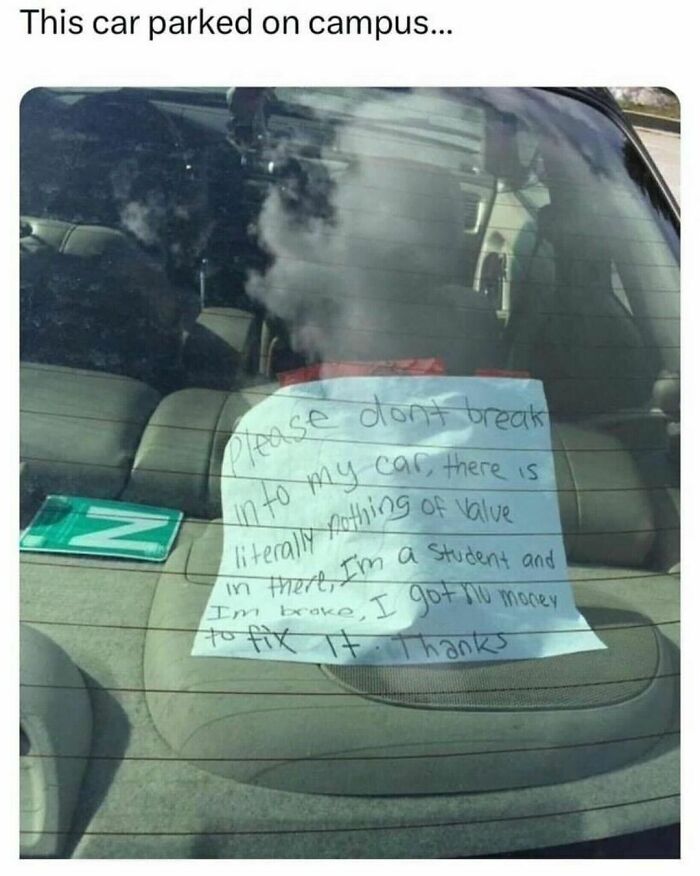 This car parked on campus...
Please dont break
into my car, there is
literally nothing of value
in there, I'm a student and
Im broke, I got no money
to fix it. Thanks
N